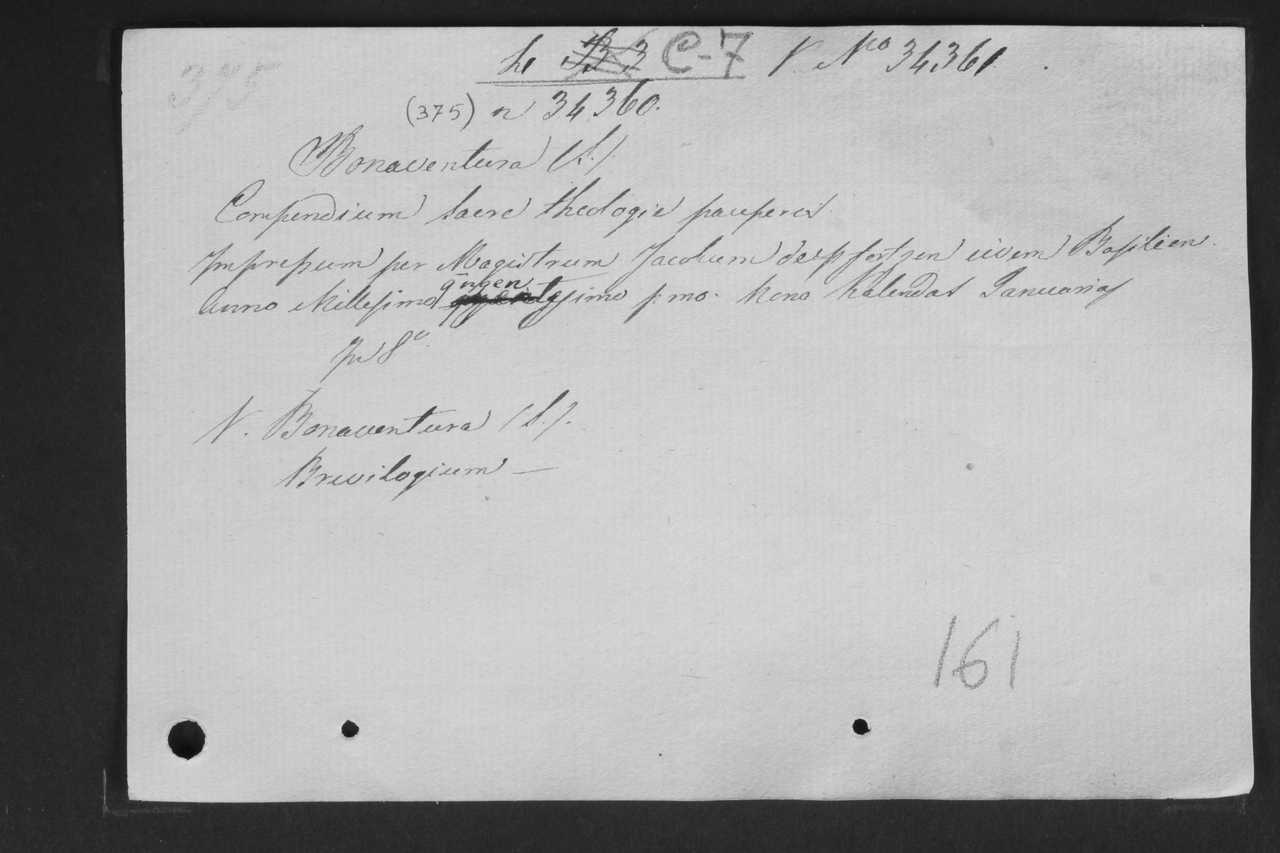 375
C-7 V No 34361
(375) n 34360.
Bonaventura (S.)
Compendium sacre theologie pauperis
Impressum per Magistrum Jacobum de pfortzen civem Basilien.
Anno Millesimo qūngen simo p.mo. Nono Kalendas Januarias
In 8º
V. Bonaventura (S.).
Brevilogium —
161